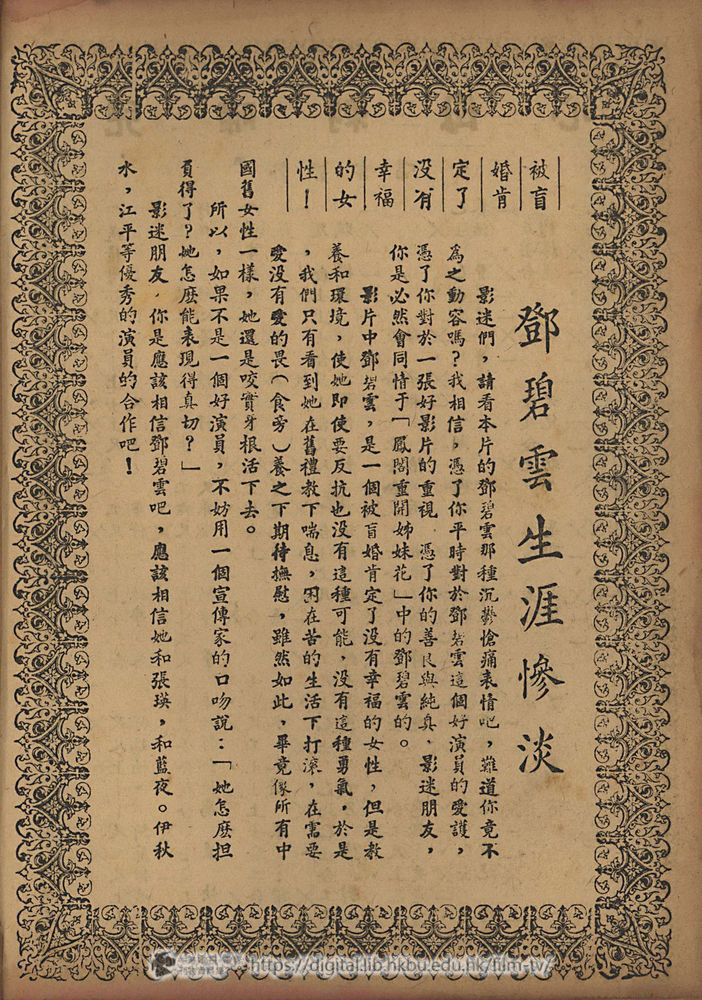 鄧碧雲生涯慘淡
被盲
婚肯
定了
没有
幸福
的女
性！
影迷們，請看本片的鄧碧雲那種沉鬱愴痛表情吧，難道你竟不
為之動容嗎？我相信，憑了你平時對於鄧碧雲這個好演員的愛護，
憑了你對於一張好影片的重視，憑了你的善良與純真，影迷朋友，
你是必然會同情于「鳳閣重開姊妹花」中的鄧碧雲的。
影片中鄧碧雲，是一個被盲婚肯定了没有幸福的女性，但是教
養和環境，使她即使要反抗也没有這種可能，没有這種勇氣，於是
，我們只有看到她在舊禮教下喘息，困在苦的生活下打滾，在需要
愛没有愛的畏（食旁）養之下期待撫慰，雖然如此，畢竟像所有中
國舊女性一樣，她還是咬實牙根活下去。
所以，如果不是一個好演員，不妨用一個宣傳家的口吻說：「她怎麼担
負得了？她怎麼能表現得真切？」
影迷朋友，你是應該相信鄧碧雲吧，應該相信她和張瑛，和藍夜。伊秋
水，江平等優秀的演員的合作吧！
https://digital.lib.hkbu.edu.hk/film-tv/